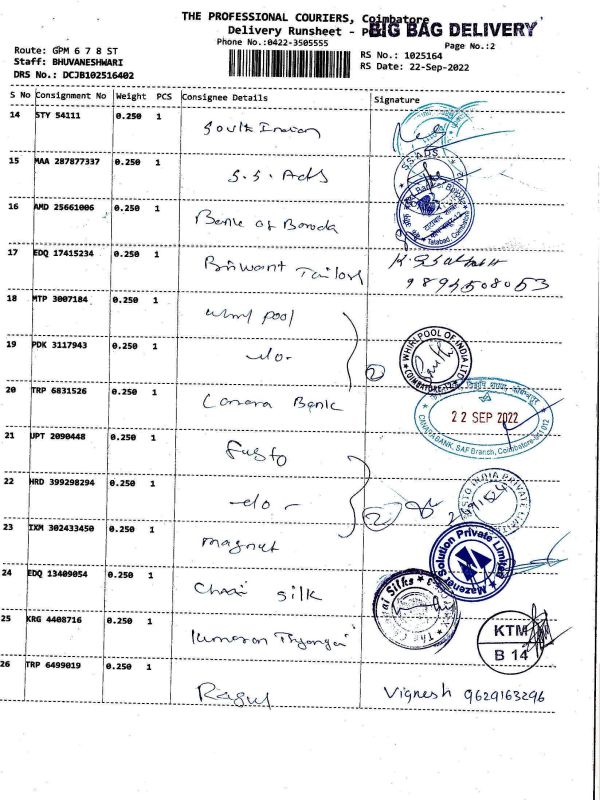 THE PROFESSIONAL COURIERS, Coimbatore
Delivery Runsheet - P BIG BAG DELIVERY
Phone No.:0422-3505555
Page No.:2
Route: GPM 6 7 8 ST
RS No.: 1025164
Staff: BHUVANESHWARI
RS Date: 22-Sep-2022
DRS No.: DCJB102516402
S No Consignment No Weight PCS Consignee Details Signature
14 STY 54111 0.250 1 South Indian
15 MAA 287877337 0.250 1 S.S. Ads
S.S.ADS
16 AMD 25661006 0.250 1 Bank of Baroda
Tatabad, Coimbatore
17 EDQ 17415234 0.250 1 Briliant Tailors
18 MTP 3007184 0.250 1 whirl pool
19 PDK 3117943 0.250 1 -do-
2
WHIRLPOOL OF INDIA LTD
COIMBATORE-12
20 TRP 6831526 0.250 1 Canara Bank
22 SEP 2022
CANARA BANK, SAF Branch, Coimbatore-641012
21 UPT 2090448 0.250 1 Gusto
22 HRD 399298294 0.250 1 -do-
2
INDIA PRIVATE
23 IXM 302433450 0.250 1 magnet
Mazenet Solution Private Limited
24 EDQ 13409054 0.250 1 Chennai silk
The Chennai Silks
25 KRG 4408716 0.250 1 kumaran
KTM
B 14
26 TRP 6499019 0.250 1 Ragul Vignesh 9629163296